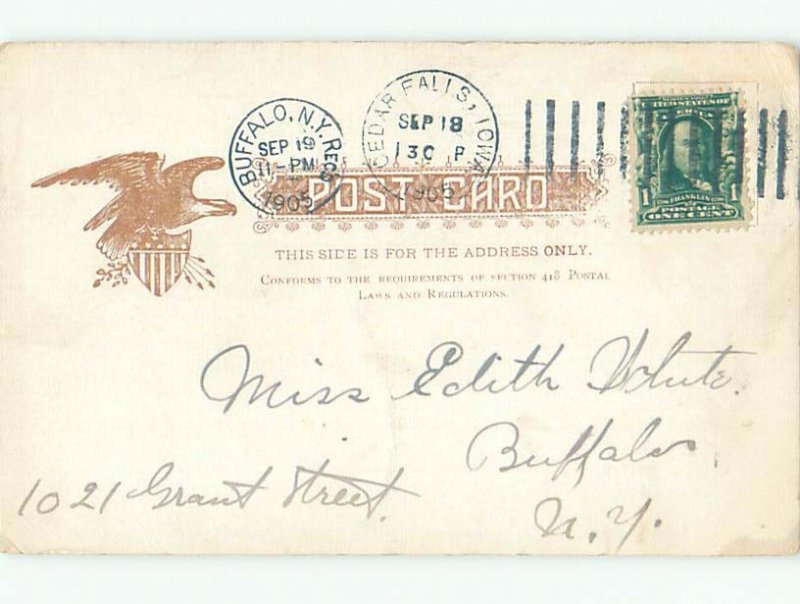 BUFFALO, N.Y. REC'D
SEP 19
11-PM
1905
CEDAR FALLS, IOWA
SEP 18
130 P
1905
POST CARD
THIS SIDE IS FOR THE ADDRESS ONLY.
CONFORMS TO THE REQUIREMENTS OF SECTION 418 POSTAL
LAWS AND REGULATIONS.
FRANKLIN
1 POSTAGE 1
ONE CENT
Miss Edith White.
Buffalo.
1021 Grant Street.
N.Y.